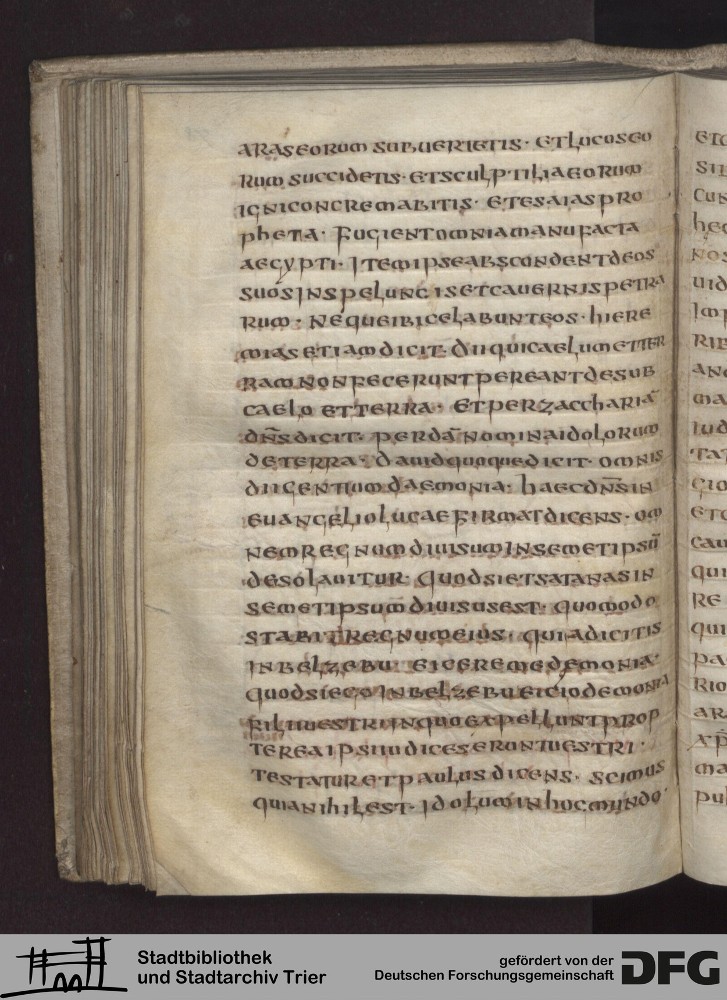 ARAS EORUM SUBUERTETIS · ET LUCOS EO
RUM SUCCIDETIS · ET SCULPTILIA EORUM
IGNI CONCREMABITIS · ET ESAIAS PRO
PHETIA · FUGIENT OMNIA MANUFACTA
AEGYPTI · ITEM IPSE ABSCONDENT DEOS
SUOS IN SPELUNCIS ET CAUERNIS PETRA
RUM · NEQUE IBI CELABUNT EOS · HIERE
MIAS ETIAM DICIT · DII QUI CAELUM ET TER
RAM NON FECERUNT PEREANT DE SUB
CAELO ET TERRA · ET PER ZACCHARIĀ
DN̄S DICIT · PERDĀ NOMINA IDOLORUM
DE TERRA · DAUID QUOQUE DICIT · OMNIS
DII GENTIUM DAEMONIA · HAEC DN̄S IN
EUANGELIO LUCAE FIRMAT DICENS · OM
NEM REGNUM DIUISUM IN SEMETIPSŪ
DESOLAUITUR · QUOD SI ET SATANAS IN
SEMETIPSUM DIUISUS EST · QUOMODO
STABIT REGNUM EIUS · QUIA DICITIS
IN BELZEBU EICERE ME DEMONIA ·
QUOD SI EGO IN BELZEBU EICIO DEMONIA
FILII UESTRI IN QUO EXPELLUNT PROP
TEREA IPSI IUDICES ERUNT UESTRI ·
TESTATUR ET PAULUS DICENS · SCIMUS
QUIA NIHIL EST · IDOLUM IN HOC MUNDO ·
Stadtbibliothek
und Stadtarchiv Trier
gefördert von der
Deutschen Forschungsgemeinschaft
DFG